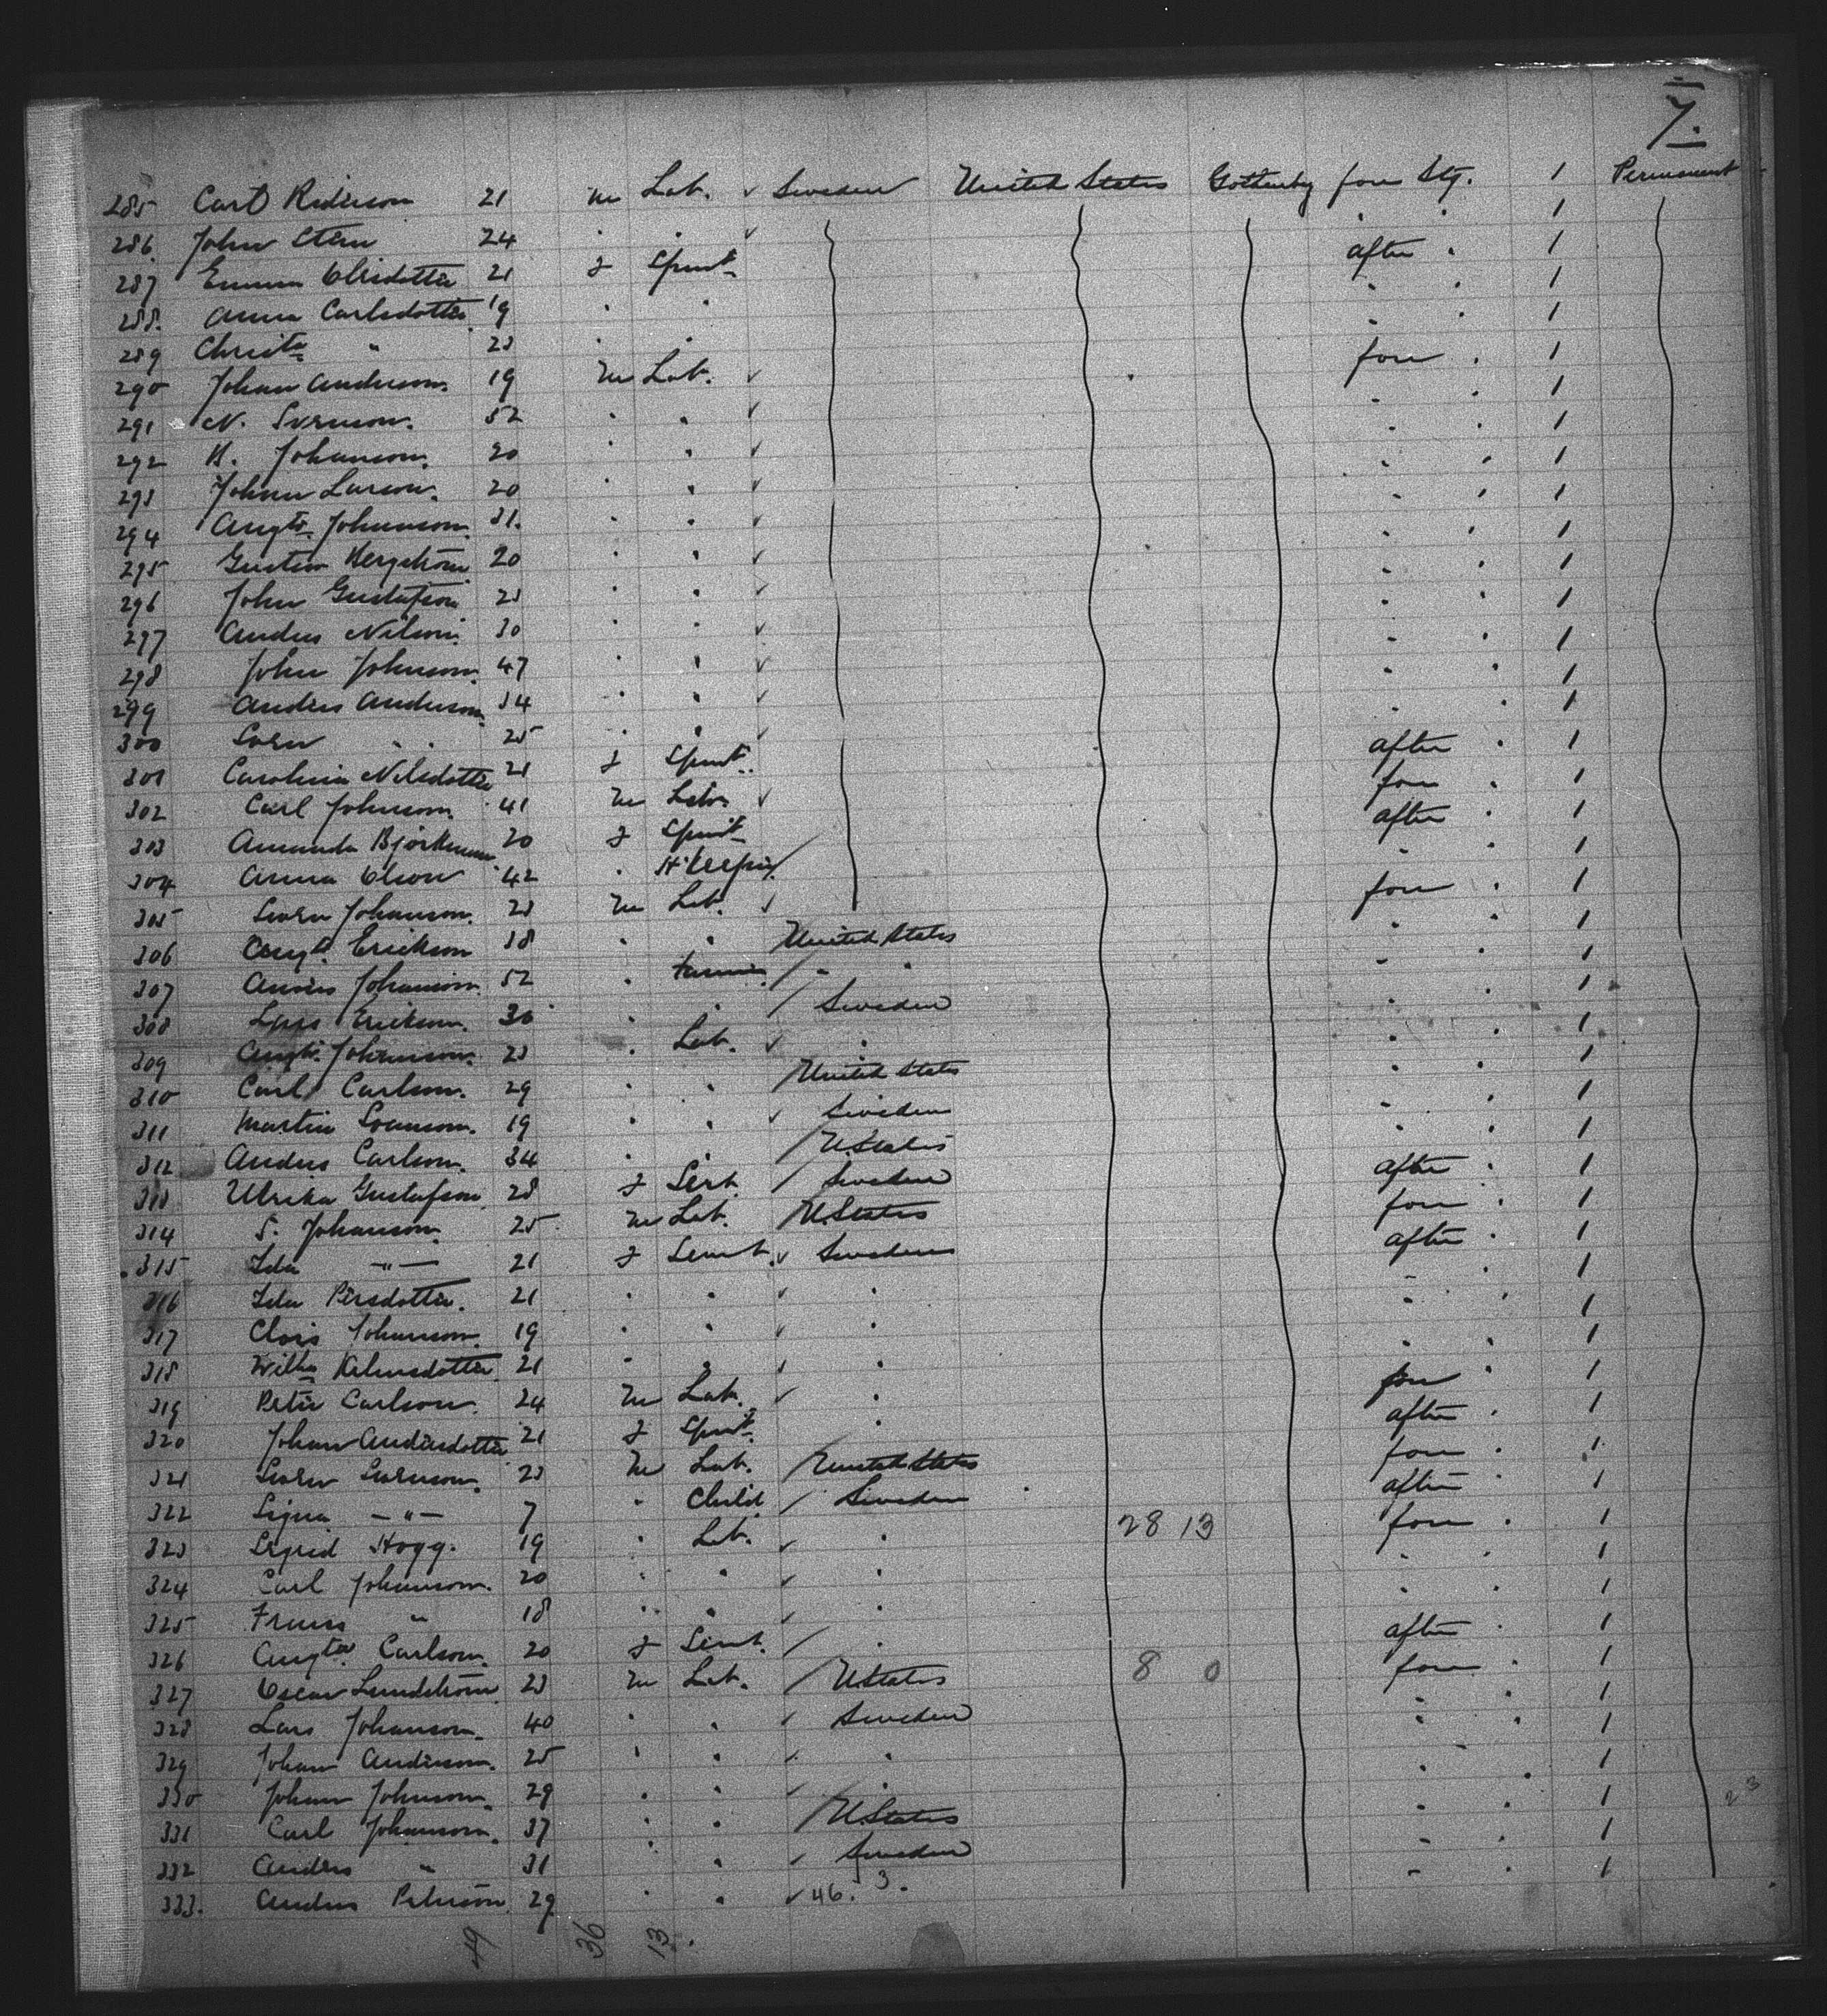 7.
285 Carl Robinson 21 m Lab. ✓ Sweden United States Gothenbg fore Stg. 1 Permanent
286. John 24 " " ✓ " " 1
287 Emma Olrsdotter 21 f Spnst. after " 1
288. Anna Carlsdotter 19 " " " " 1
289 Christa " 23 " " " " 1
290 Johan Anderson. 19 m Lab. ✓ fore " 1
291 N. Svenson. 52 " " ✓ " " 1
292 K. Johanson. 20 " " ✓ " " 1
293 Johan Larson. 20 " " ✓ " " 1
294 Augt. Johanson 31. " " ✓ " " 1
295 Gustav Bergstrom 20 " " ✓ " " 1
296 John Gustafson 23 " " ✓ " " 1
297 Anders Nilson. 30 " " ✓ " " 1
298 John Johnson. 47 " " ✓ " " 1
299 Anders Anderson 34 " " ✓ " " 1
300 Sven " " 25 " " ✓ " " 1
301 Carolina Nilsdotter 21 f Spnst. after " 1
302 Carl Johnson. 41 m Labr ✓ fore " 1
303 Amanda Bjorkman 20 f Spnst after " 1
304 Anna Olson 42 " H'Keepr / " " 1
305 Sven Johanson. 23 m Lab. ✓ fore " 1
306 Augt. Erickson 38 " " United States " " 1
307 Johanson 52 " Farmer / " " " " 1
308 Lars Erickson. 30 " " / Sweden " " 1
309 Augt. Johanson. 23 " Lab. ✓ " " " 1
310 Carl Carlson. 29 " " / United States " " 1
311 Martin Svanson. 19 " " ✓ Sweden " " 1
312 Anders Carlson. 34 " " / U.States " " 1
313 Ulrika Gustafson 28 f Servt. / Sweden after " 1
314 S. Johanson. 25 m Lab. / U.States fore " 1
315 Ida —"— 21 f Servt. ✓ Sweden after " 1
316 Ida Persdotter. 21 " " ✓ " " " 1
317 Johanson 19 " " ✓ " " " 1
318 Wilha 21 " " ✓ " " " 1
319 Peter Carlson. 24 m Lab. ✓ " fore " 1
320 Johan Andersdotter 21 f Spnst. " after " 1
321 Sven Svenson. 23 m Lab. / United States fore " 1
322 Signa —"— 7 " Child / Sweden after " 1
323 Sigrid Hogg. 19 " Lab. ✓ " 28 13 fore " 1
324 Carl Johanson. 20 " " ✓ " " " 1
325 Frans " 18 " " ✓ " " " 1
326 Augta. Carlson. 20 f Servt. / " after " 1
327 Oscar Lundstrom 23 m Lab. / U.States 8 0 fore " 1
328 Lars Johanson. 40 " " / Sweden " " 1
329 Johan Anderson. 25 " " ✓ " " " 1
330 Johan Johnson. 29 " " ✓ " " " 1 23
331 Carl Johanson. 37 " " / U.States " " 1
332 Anders " 31 " " ✓ Sweden " " 1
333. Anders Peterson. 29 " " ✓ 46. 3.
49 36 13.